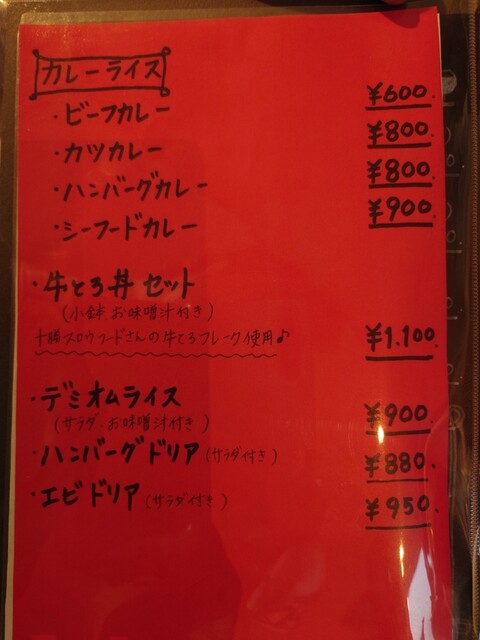 カレーライス
・ビーフカレー ¥600.
・カツカレー ¥800.
・ハンバーグカレー ¥800.
・シーフードカレー ¥900.
・牛とろ丼 セット
(小鉢 お味噌汁付き)
十勝スロウフードさんの牛とろフレーク使用♪ ¥1.100.
・デミオムライス ¥900.
(サラダ お味噌汁付き)
・ハンバーグドリア (サラダ付き) ¥880.
・エビドリア (サラダ付き) ¥950.